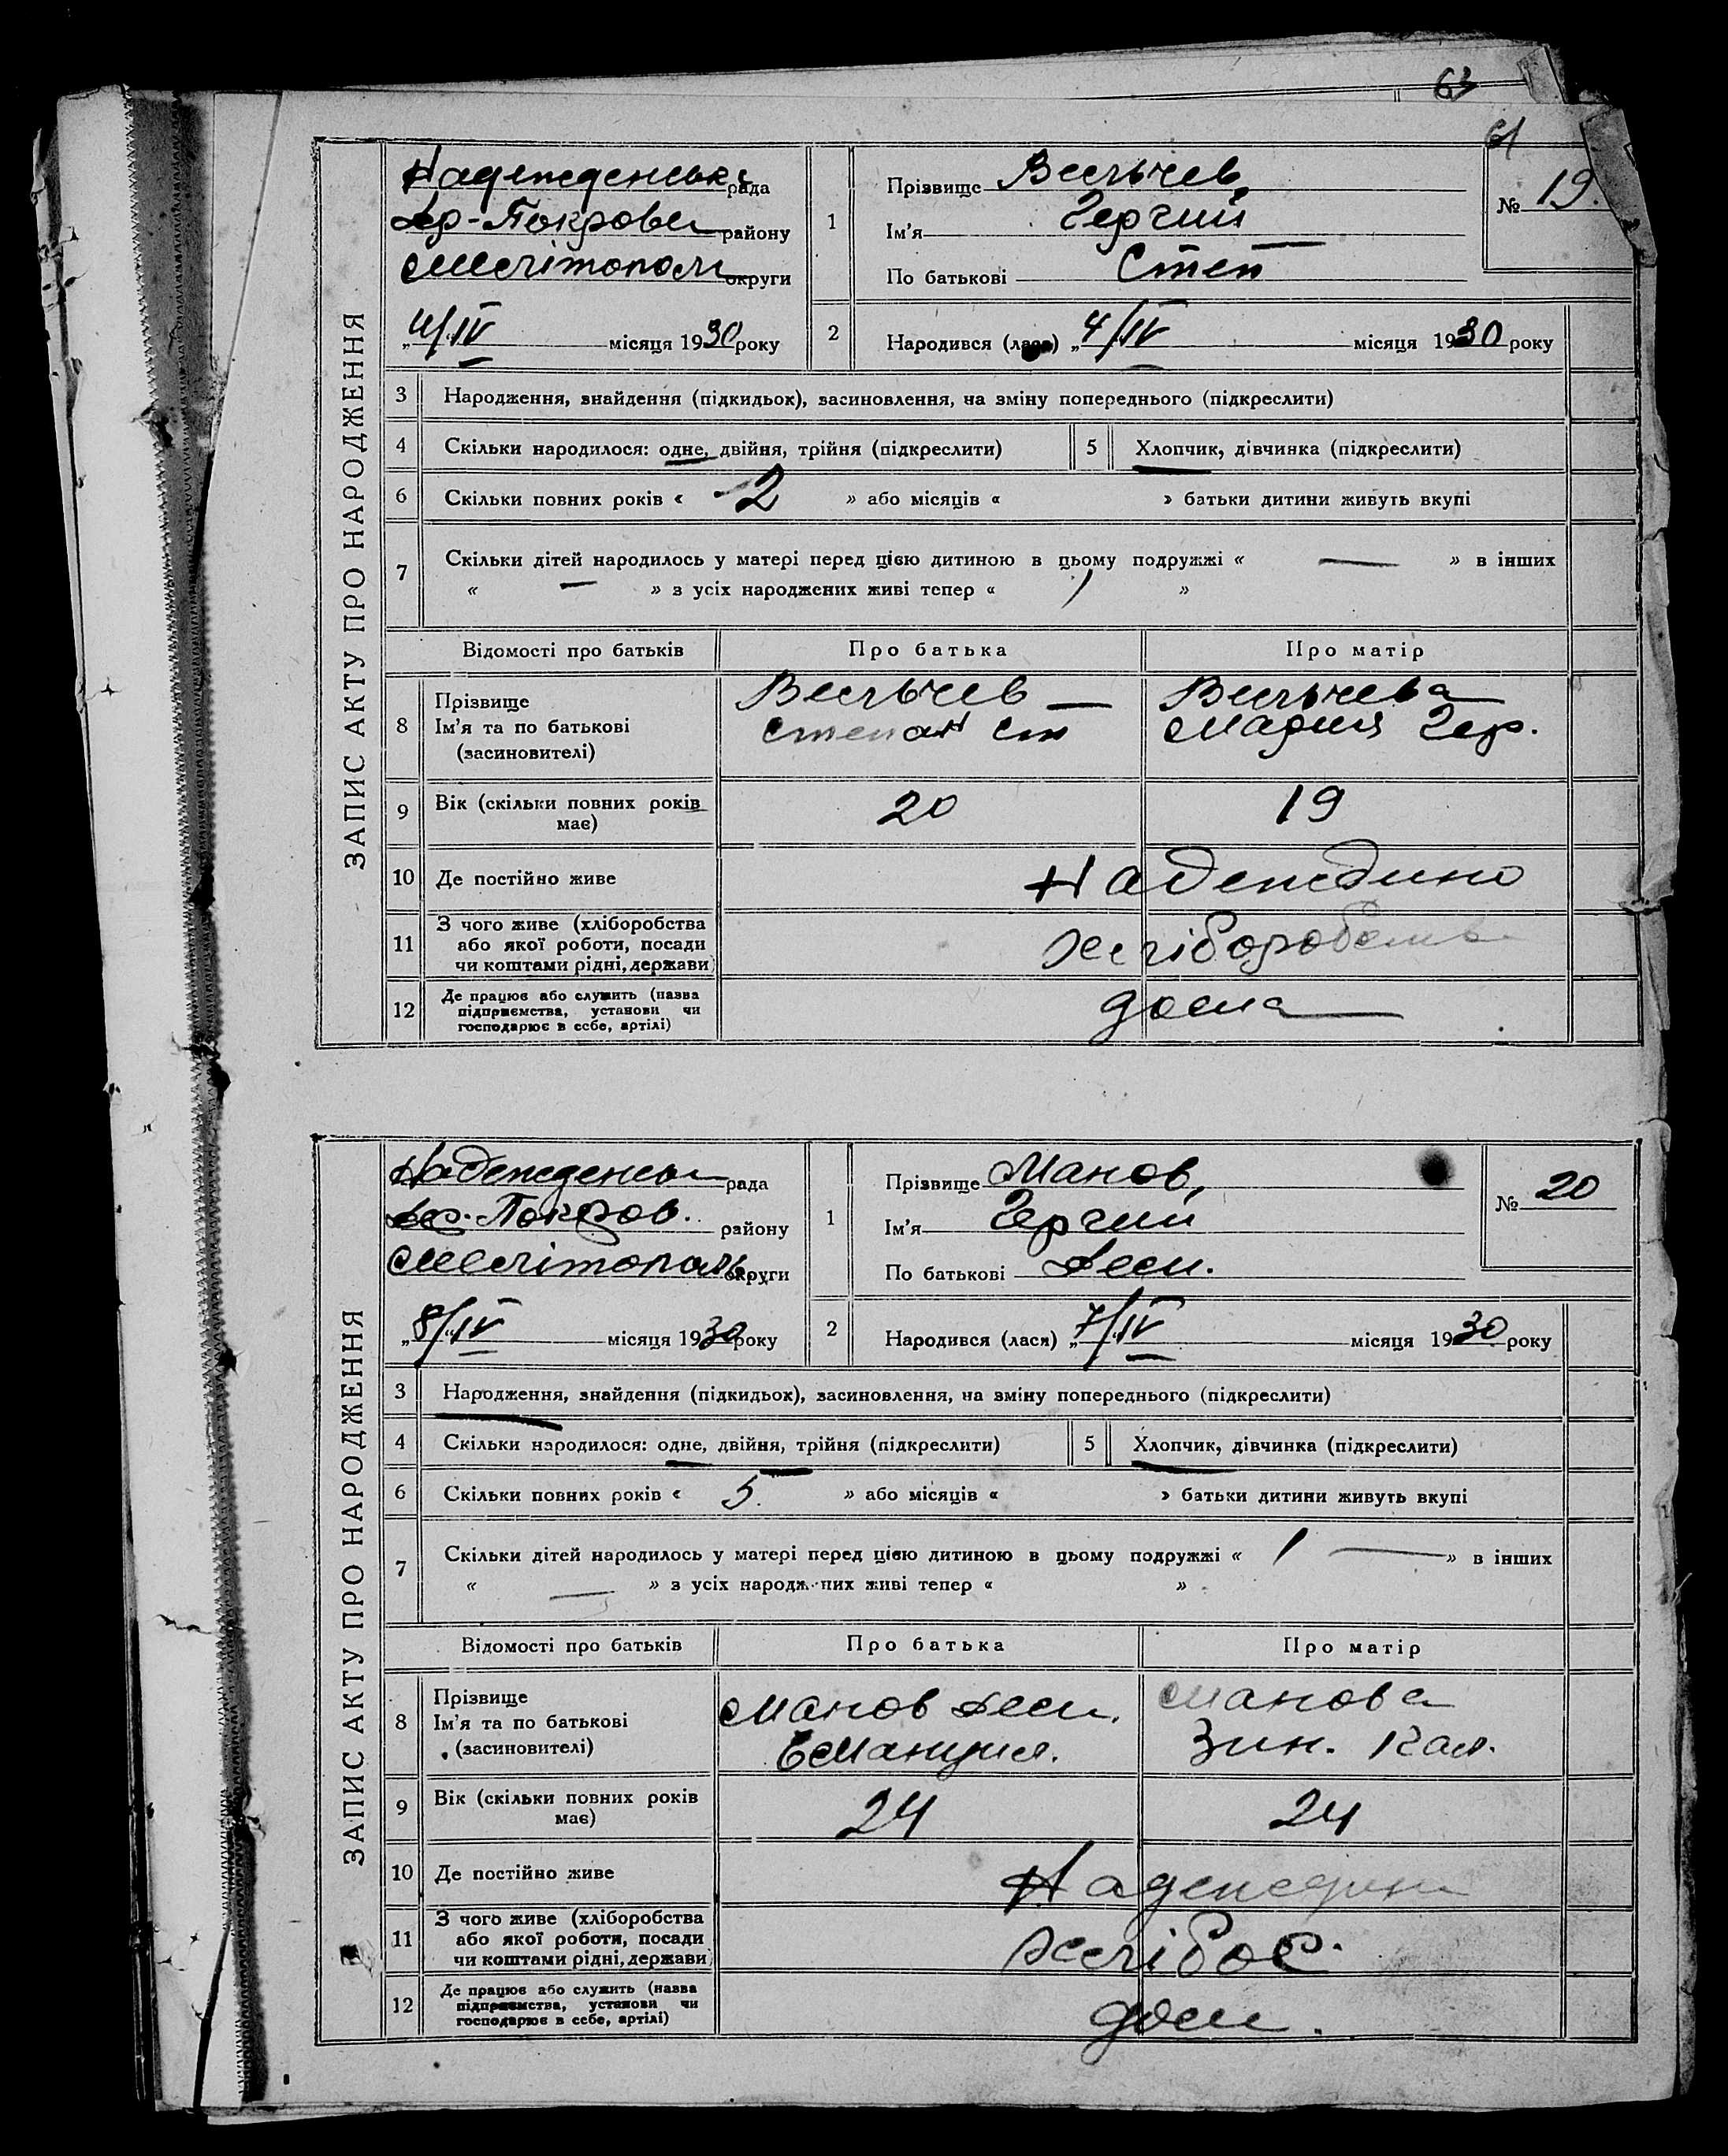 63
61
ЗАПИС АКТУ ПРО НАРОДЖЕННЯ
Надежденська рада
Др-Покровск району
Мелітополь округи
„4/IV місяця 1930 року
1
Прізвище Вельчев,
Ім'я Гергий
По батькові Степ
№ 19.
2
Народився (лася) „4/IV місяця 1930 року
3 Народження, знайдення (підкидьок), засиновлення, на зміну попереднього (підкреслити)
4 Скільки народилося: одне, двійня, трійня (підкреслити) 5 Хлопчик, дівчинка (підкреслити)
6 Скільки повних років « 2 » або місяців « » батьки дитини живуть вкупі
7 Скільки дітей народилось у матері перед цією дитиною в цьому подружжі « — » в інших
« — » з усіх народжених живі тепер « / »
Відомості про батьків Про батька Про матір
8 Прізвище
Ім'я та по батькові
(засиновителі)
Вельчев
Степан Ст
Вельчева
Мария Гер.
9 Вік (скільки повних років
має)
20 19
10 Де постійно живе Надеждино
11 З чого живе (хліборобства
або якої роботи, посади
чи коштами рідні, держави)
хлібороб
12 Де працює або служить (назва
підприємства, установи чи
господарює в себе, артілі)
дома
ЗАПИС АКТУ ПРО НАРОДЖЕННЯ
Надежденськ рада
Др-Покров. району
Мелітополь округи
„8/IV місяця 1930 року
1
Прізвище Манов,
Ім'я Гергий
По батькові Дем.
№ 20
2
Народився (лася) „7/IV місяця 1930 року
3 Народження, знайдення (підкидьок), засиновлення, на зміну попереднього (підкреслити)
4 Скільки народилося: одне, двійня, трійня (підкреслити) 5 Хлопчик, дівчинка (підкреслити)
6 Скільки повних років « 5. » або місяців « » батьки дитини живуть вкупі
7 Скільки дітей народилось у матері перед цією дитиною в цьому подружжі « 1 — » в інших
« — » з усіх народжених живі тепер « »
Відомості про батьків Про батька Про матір
8 Прізвище
Ім'я та по батькові
(засиновителі)
Манов Дем.
Емануил.
Манова
Зин. Кал.
9 Вік (скільки повних років
має)
24 24
10 Де постійно живе Надеждин
11 З чого живе (хліборобства
або якої роботи, посади
чи коштами рідні, держави)
хлібор.
12 Де працює або служить (назва
підприємства, установи чи
господарює в себе, артілі)
дом.